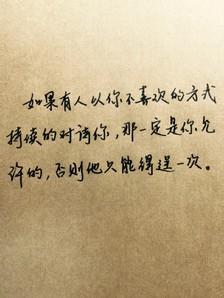 如果有人以你不喜欢的方式
持续的对待你，那一定是你允
许的，否则他只能得逞一次。